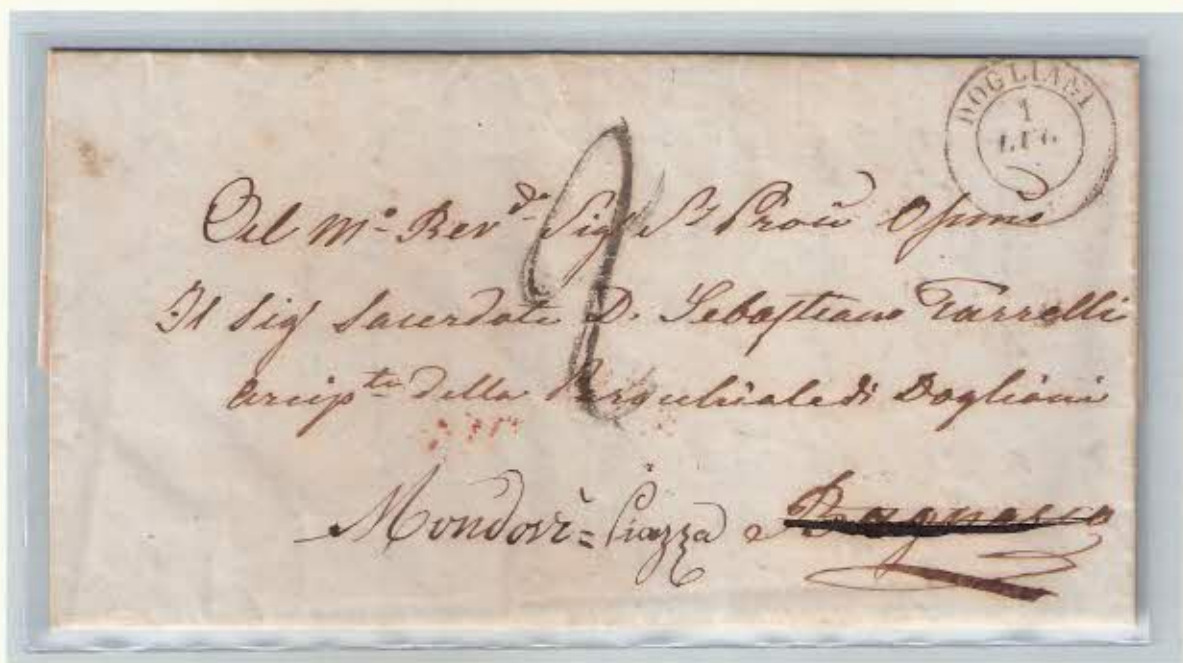 DOGLIANI
1
LUG
2
Al M.º Rev.do Sig.
Il Sig.r Sacerdote D. Sebastiano Tarrelli
Arcip.te della Parochiale di Dogliani
Mondovì = Piazza Bagnasco